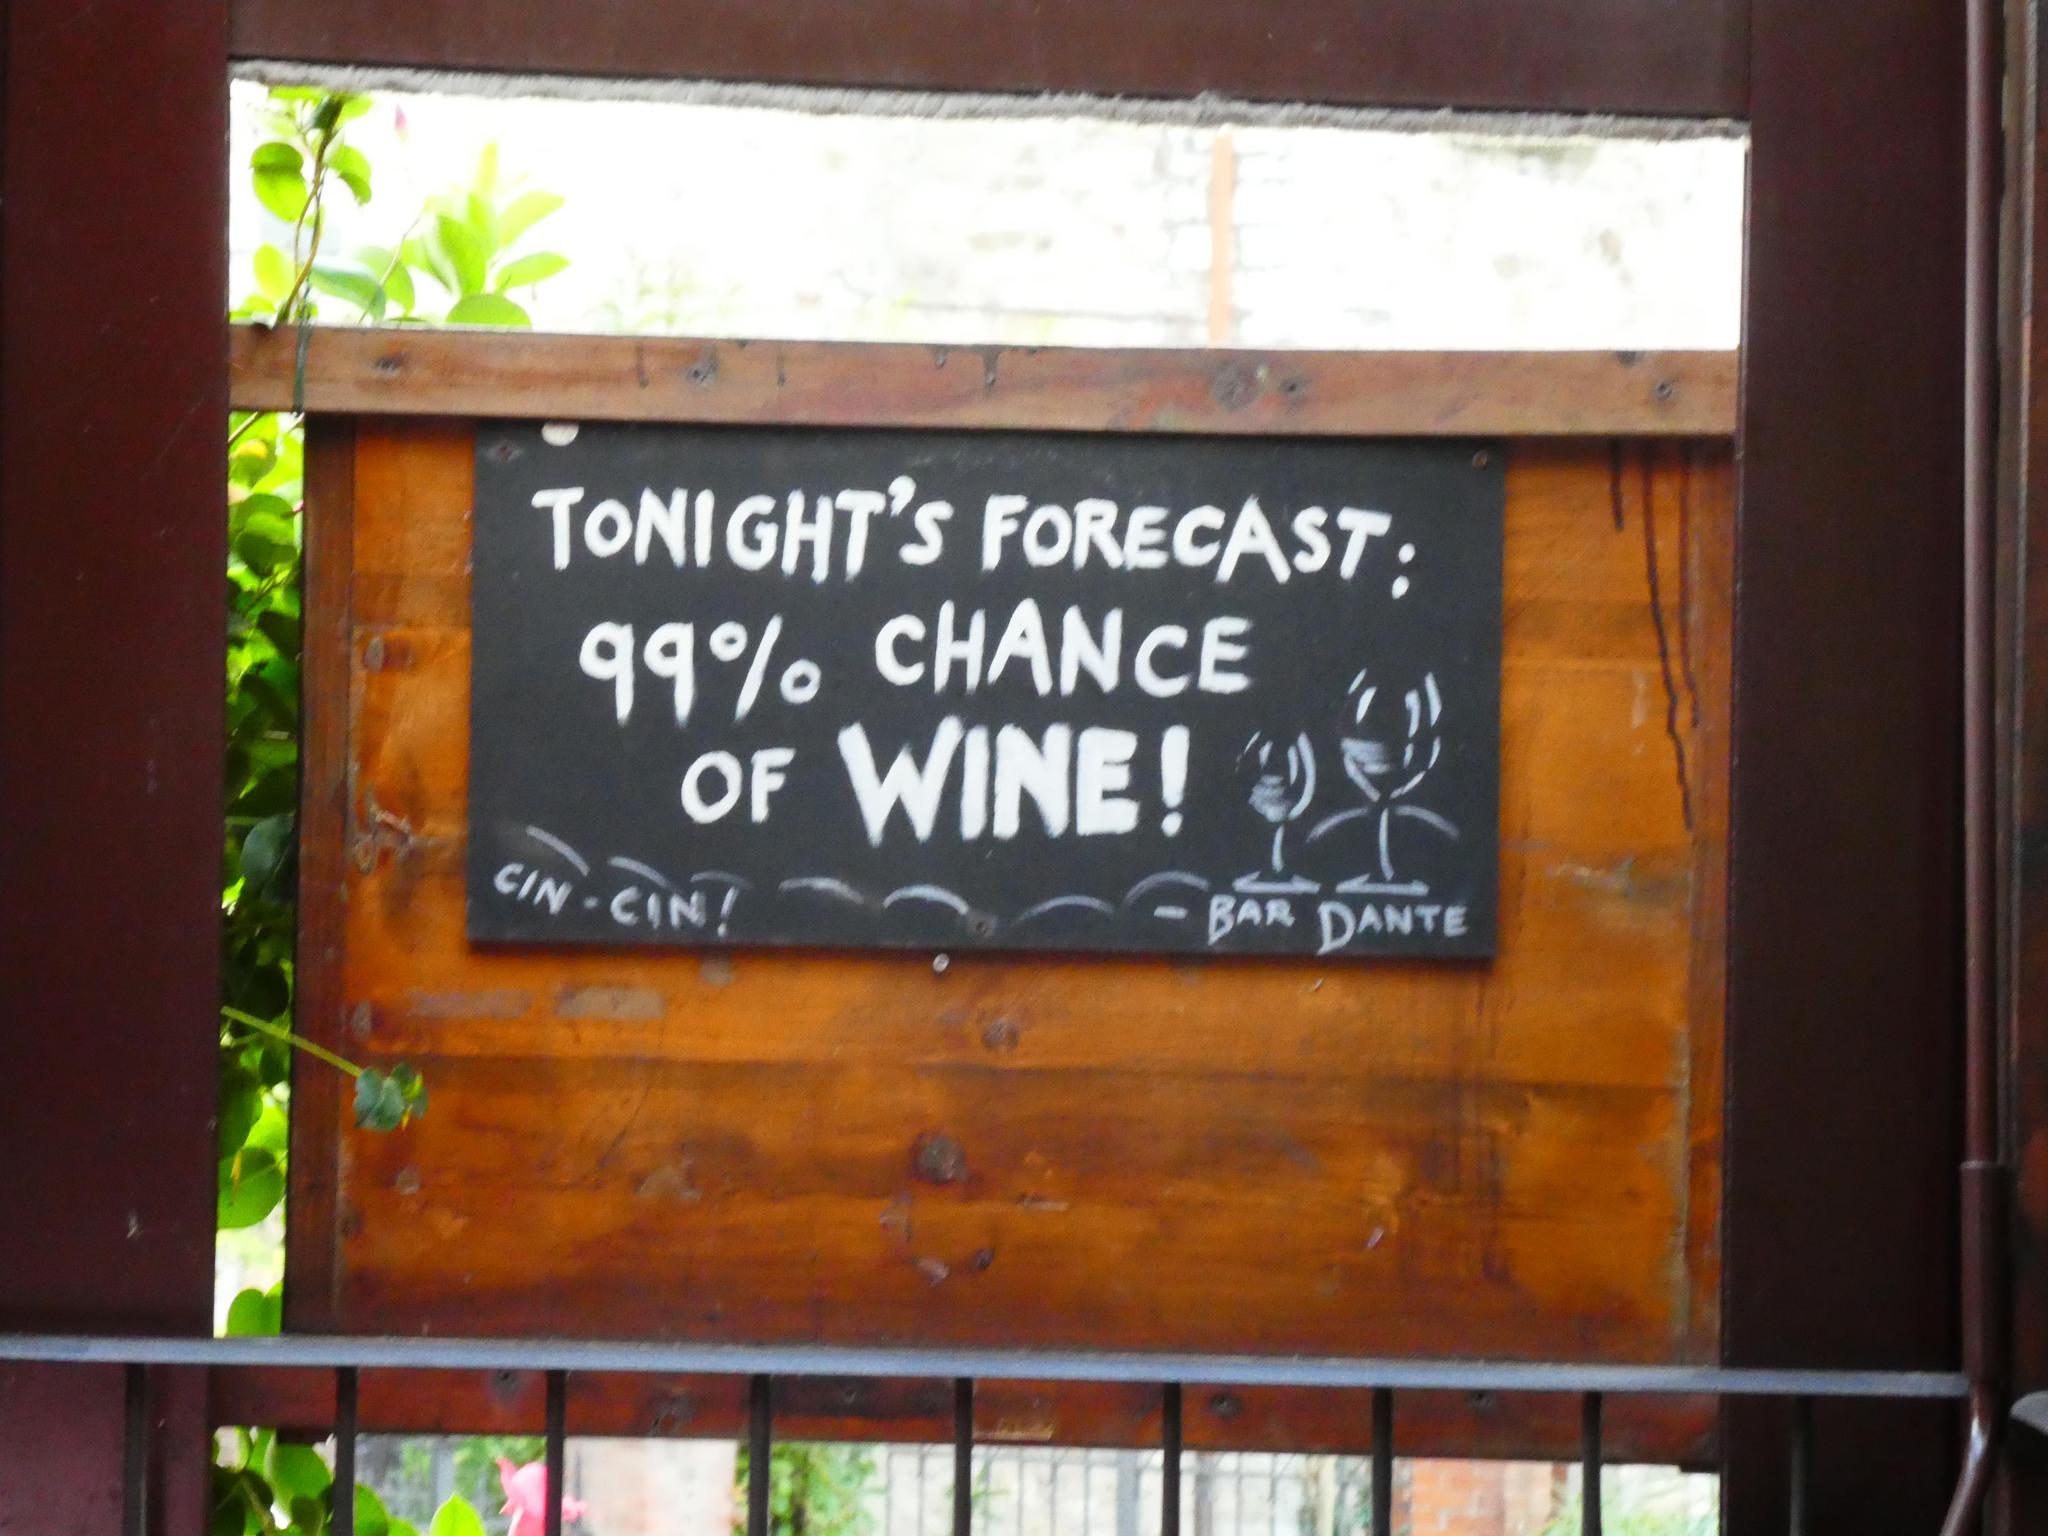 TONIGHT'S FORECAST:
99% CHANCE
OF WINE!
CIN-CIN!
- BAR DANTE